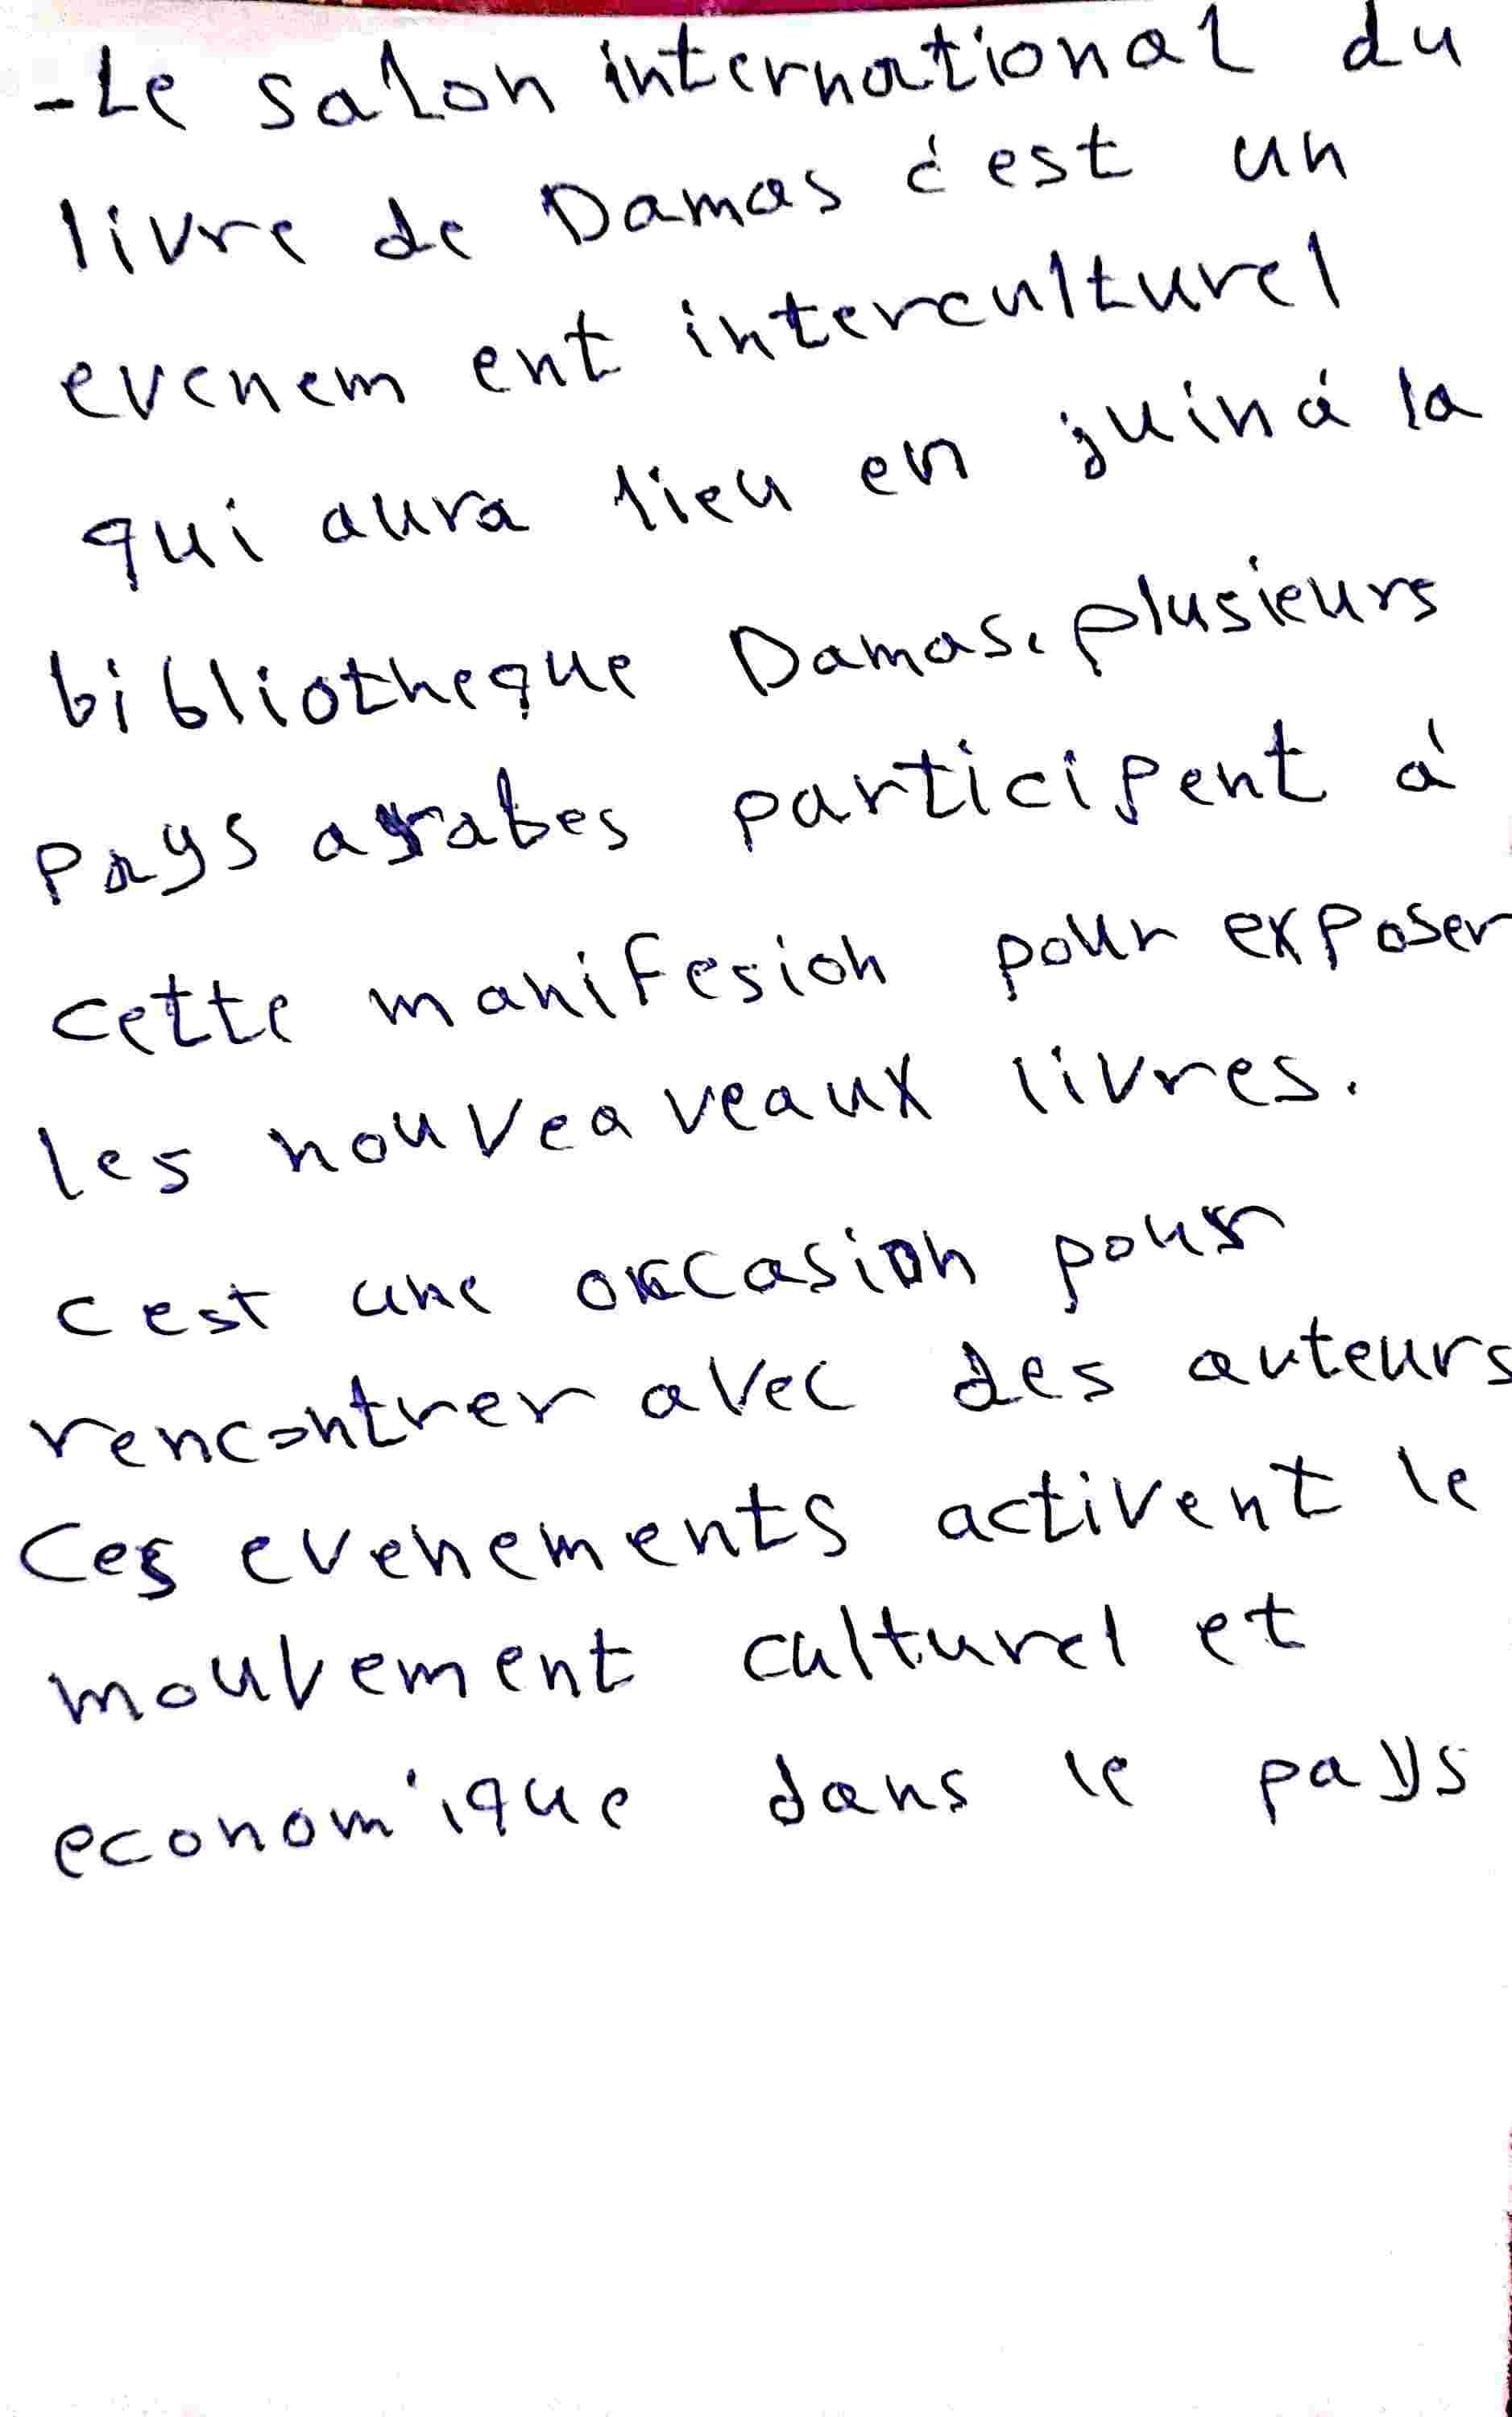 -Le salon international du
livre de Damas c'est un
evenem ent interculturel
qui aura lieu en juin à la
bibliotheque Damas. plusieurs
pays arabes participent à
cette manifesion pour exposer
les nouveaveaux livres.
c est une occasion pour
rencontrer avec des auteurs
Ces evenements activent le
mouvement culturel et
economique dans le pays